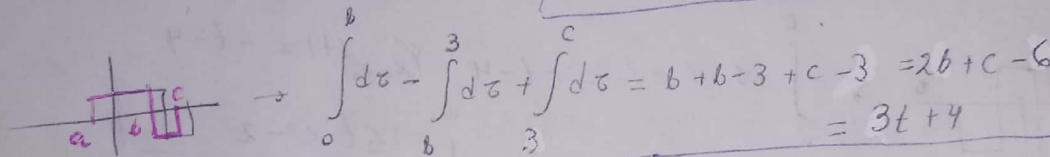 a b c → ∫₀ᵇ dτ - ∫ᵦ³ dτ + ∫₃ᶜ dτ = b + b - 3 + c - 3 = 2b + c - 6
= 3t + 4